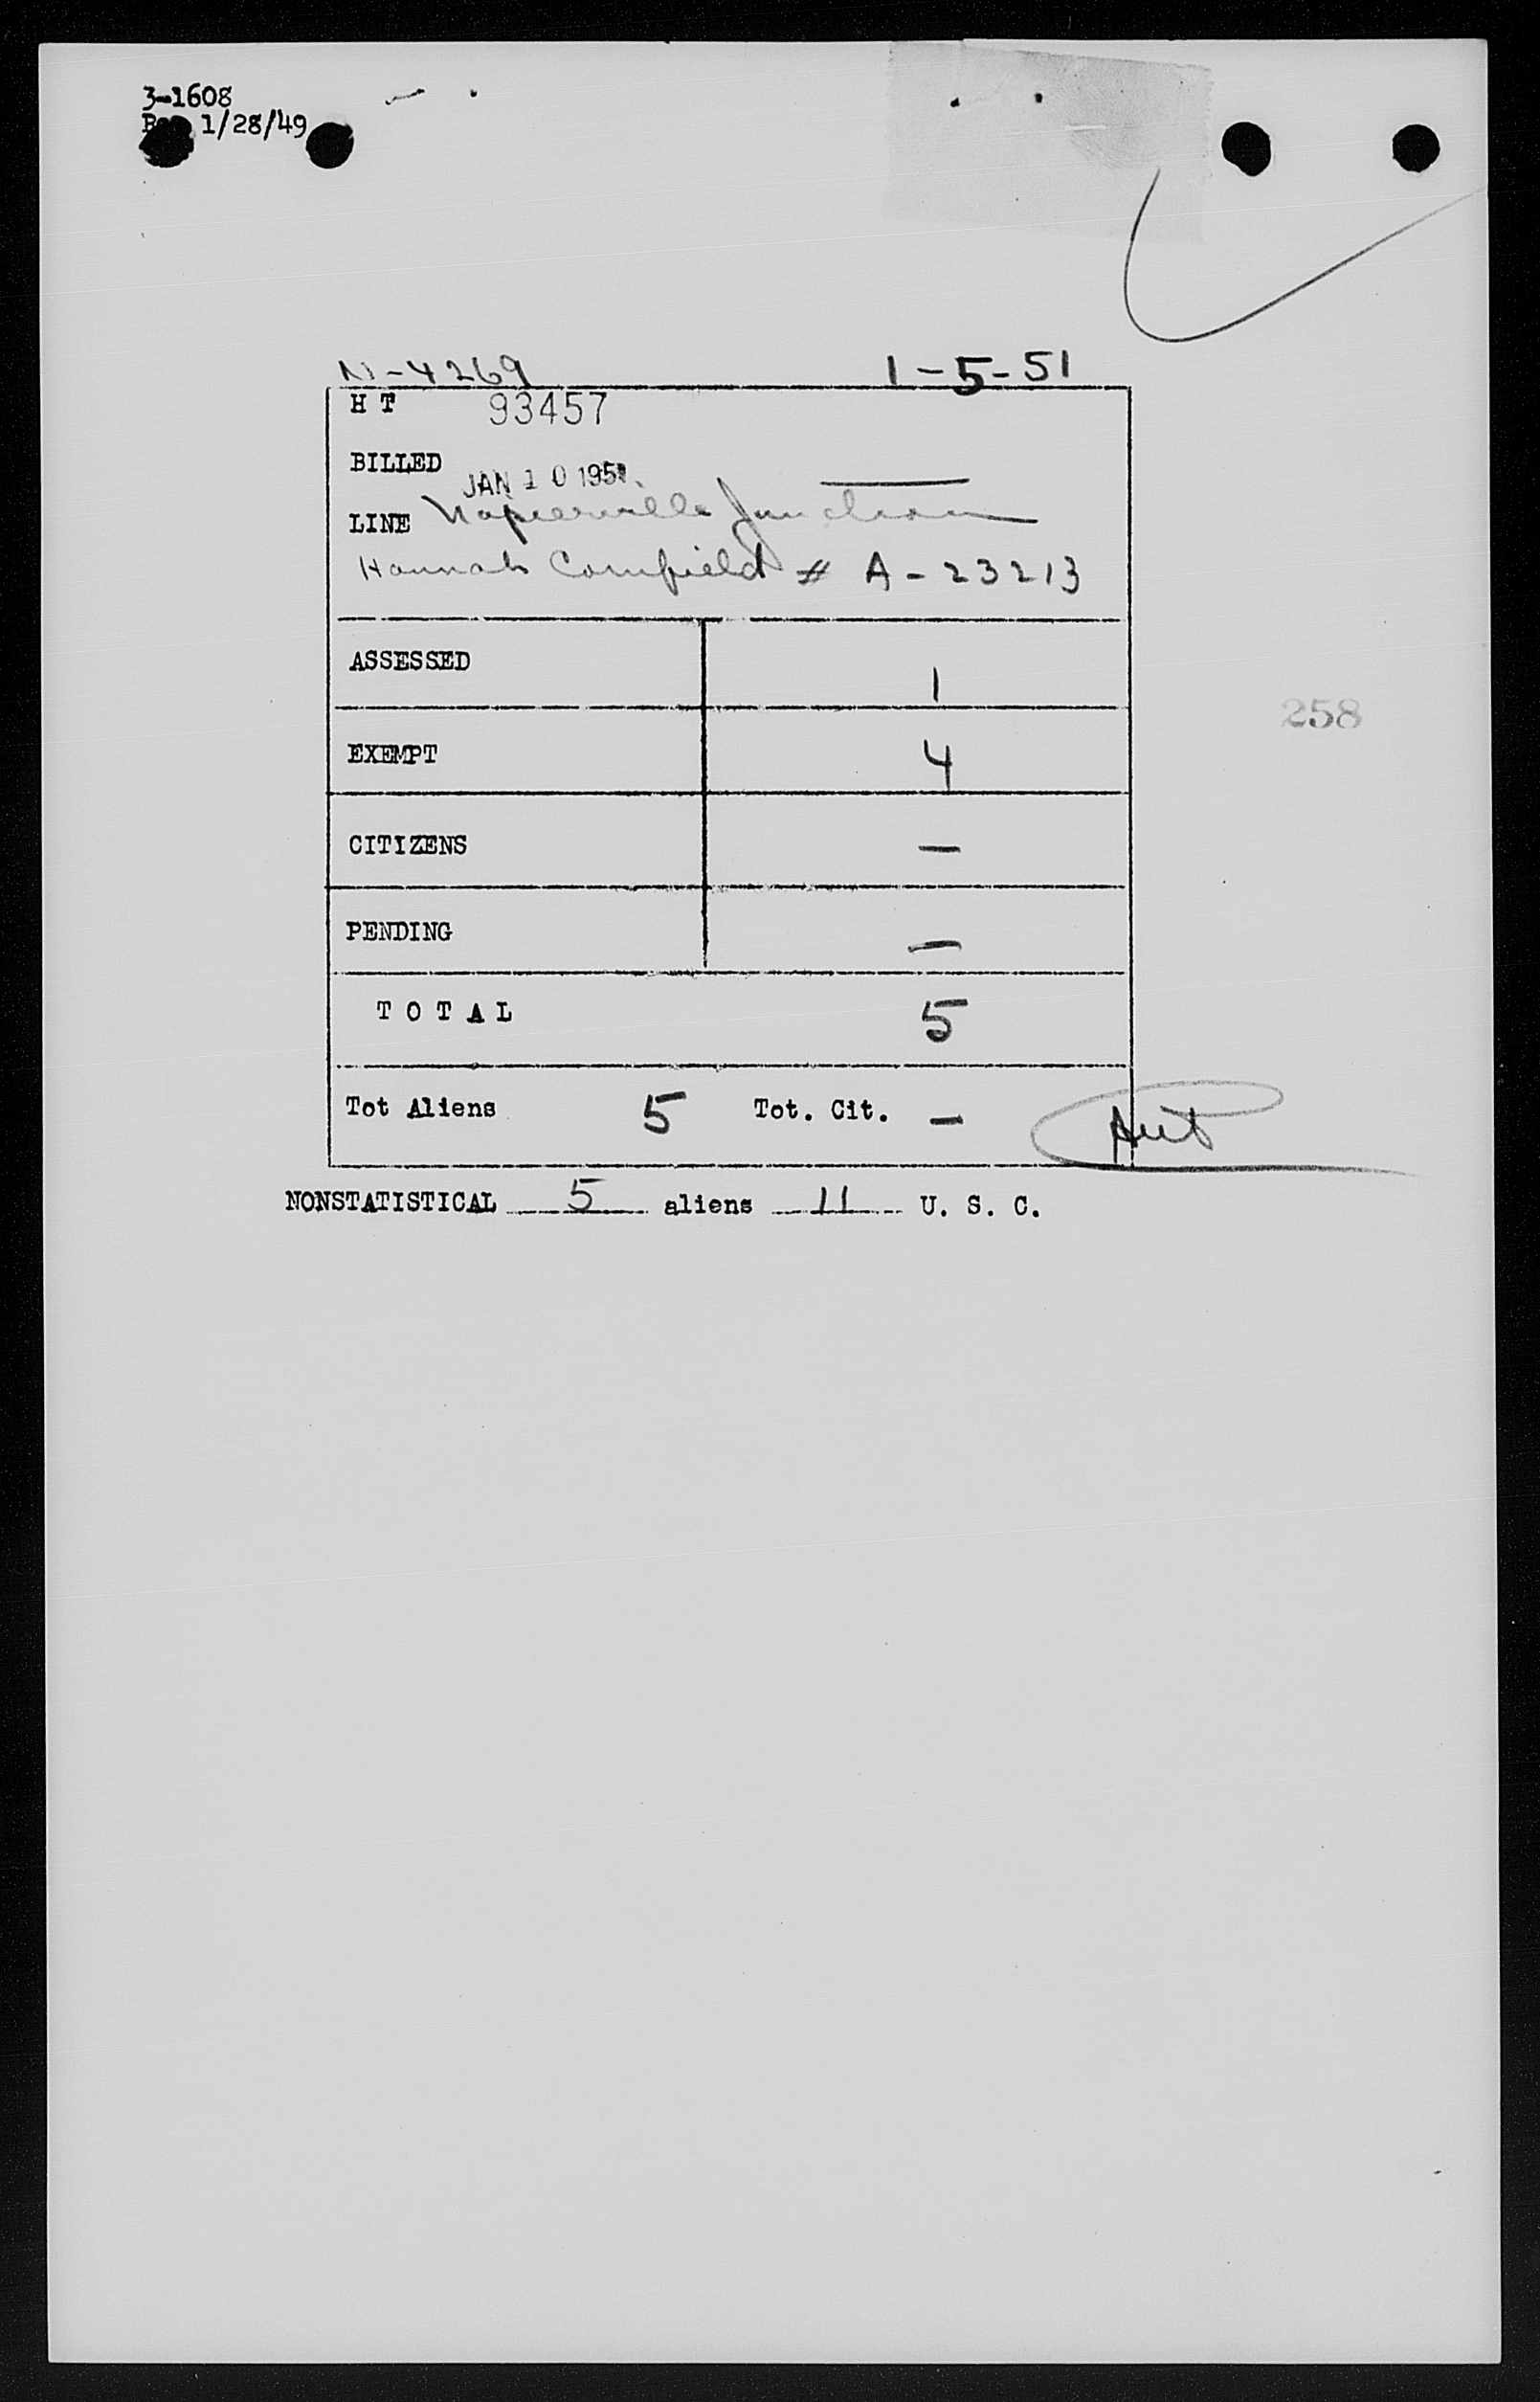 3-1608
1/28/49
N-4269 1-5-51
H T 93457
BILLED JAN 10 195
LINE Napierville Junction
Hannah Cornfield # A-23213
ASSESSED 1
EXEMPT 4
258
CITIZENS —
PENDING —
TOTAL 5
Tot Aliens 5 Tot. Cit. —
NONSTATISTICAL 5 aliens 11 U. S. C.